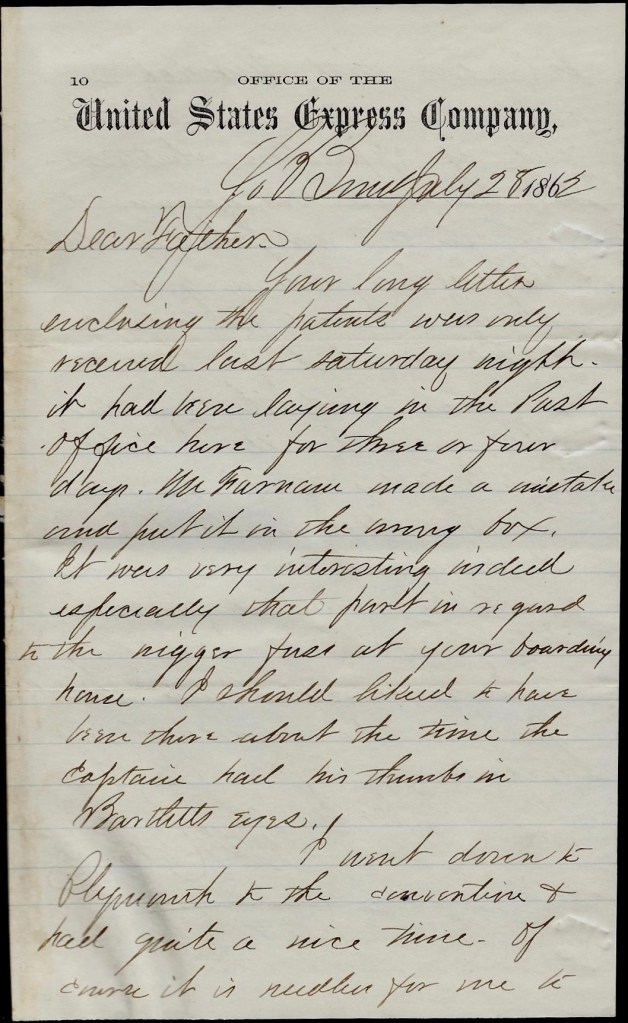 10 OFFICE OF THE
United States Express Company,
July 28 1862
Dear Father.
Your long letter
enclosing the patents was only
received last saturday night.
it had been laying in the Post
office here for three or four
days. Mr Farnam made a mistake
and put it in the wrong box.
It was very interesting indeed
especially that part in regard
to the nigger fuss at your boarding
house. I should liked to have
been there about the time the
Captain had his thumbs in
Bartletts eyes.
I went down to
Plymouth to the convention &
had quite a nice time. Of
course it is needless for me to